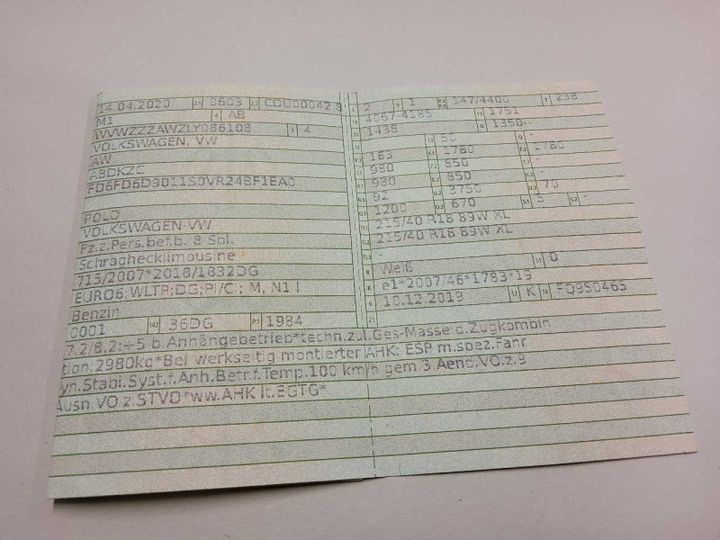 14.04.2020 0603 CDU00042 8
M1 AB
WVWZZZAWZLY086108 4
VOLKSWAGEN, VW
AW
ABDKZC
FD6FD6D9011S0VR24BF1EA0
POLO
VOLKSWAGEN-VW
Fz.z.Pers.bef.b. 8 Spl.
Schräghecklimousine
715/2007*2018/1832DG
EURO6;WLTP;DG;PI/CI; M, N1 I
Benzin
0001 36DG 1984
2 1 147/4400 238
4067-4185 1751
1438 1350--
50 -
163 1780 1780
980 850 -
980 850 -
92 3750 70
1200 670 5 -
215/40 R18 89W XL
215/40 R18 89W XL
Weiß 0
e1*2007/46*1783*19
10.12.2019 K FQ950465
7.2/8.2:+5 b.Anhängebetrieb*techn.zul.Ges-Masse d.Zugkombin
tion:2980kg*Bei werkseitig montierter AHK: ESP m.spez.Fahr
yn.Stabi.Syst.f.Anh.Betr.f.Temp.100 km/h gem.3.Aend.VO.z.9
Ausn.VO z.STVO*ww.AHK lt.EGTG*